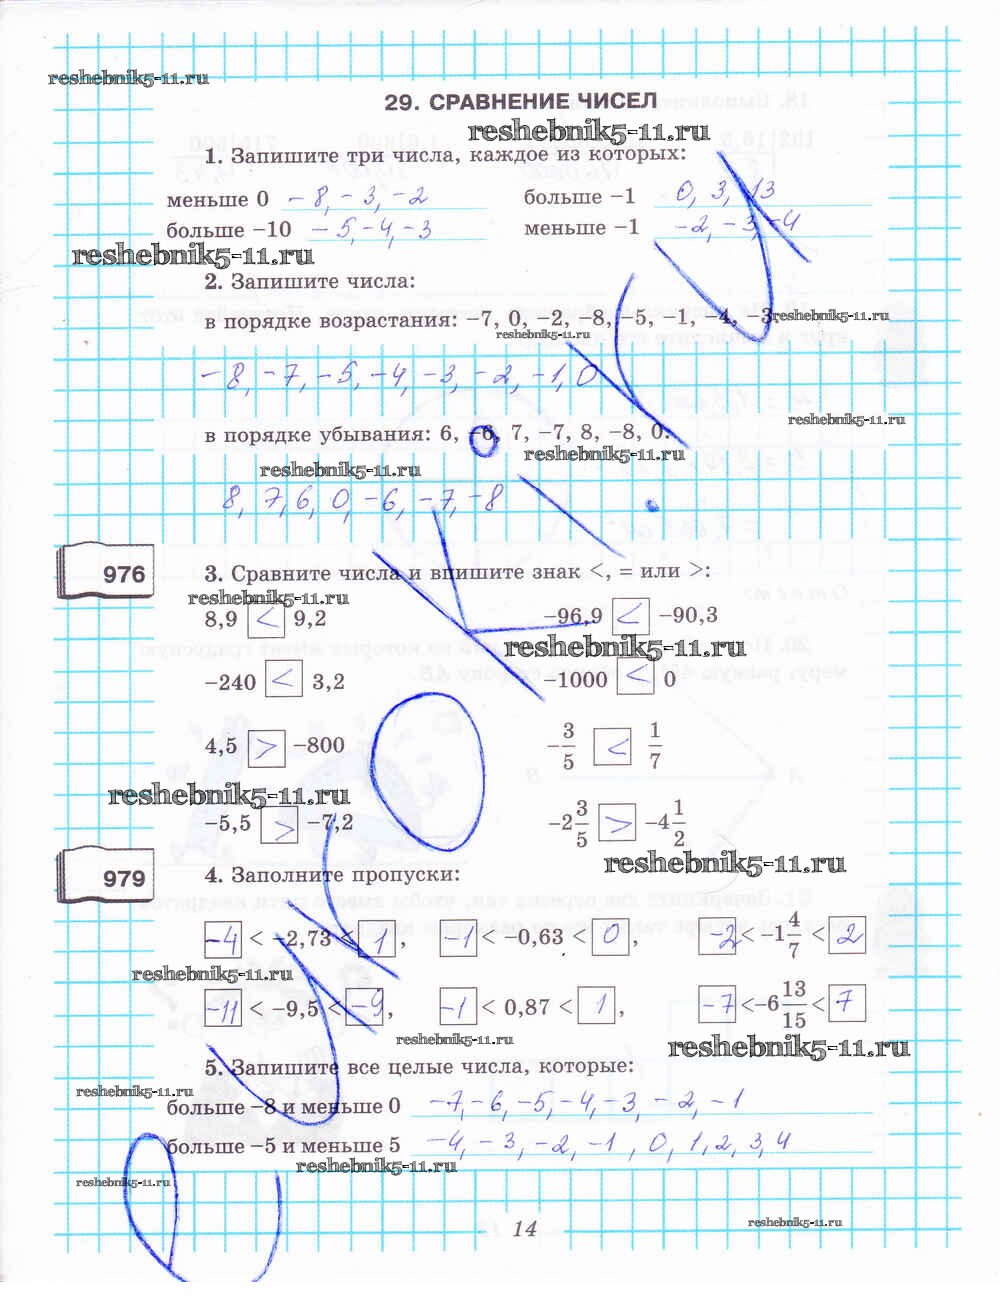 reshebnik5-11.ru
29. СРАВНЕНИЕ ЧИСЕЛ
reshebnik5-11.ru
1. Запишите три числа, каждое из которых:
меньше 0 -8, -3, -2 больше −1 0, 3, 13
больше −10 -5, -4, -3 меньше −1 -2, -3, -4
reshebnik5-11.ru
2. Запишите числа:
в порядке возрастания: −7, 0, −2, −8, −5, −1, −4, −3. reshebnik5-11.ru
reshebnik5-11.ru
-8, -7, -5, -4, -3, -2, -1, 0
reshebnik5-11.ru
в порядке убывания: 6, −6, 7, −7, 8, −8, 0.
reshebnik5-11.ru reshebnik5-11.ru
8, 7, 6, 0, -6, -7, -8
976 3. Сравните числа и впишите знак <, = или >:
reshebnik5-11.ru
8,9 < 9,2 −96,9 < −90,3
reshebnik5-11.ru
−240 < 3,2 −1000 < 0
4,5 > −800 −3/5 < 1/7
reshebnik5-11.ru
−5,5 > −7,2 −2 3/5 > −4 1/2
reshebnik5-11.ru
979 4. Заполните пропуски:
-4 < −2,73 < 1, -1 < −0,63 < 0, -2 < −1 4/7 < 2
reshebnik5-11.ru
-11 < −9,5 < -9, -1 < 0,87 < 1, -7 < −6 13/15 < 7
reshebnik5-11.ru reshebnik5-11.ru
5. Запишите все целые числа, которые:
reshebnik5-11.ru
больше −8 и меньше 0 -7, -6, -5, -4, -3, -2, -1
больше −5 и меньше 5 -4, -3, -2, -1, 0, 1, 2, 3, 4
reshebnik5-11.ru
reshebnik5-11.ru
14 reshebnik5-11.ru